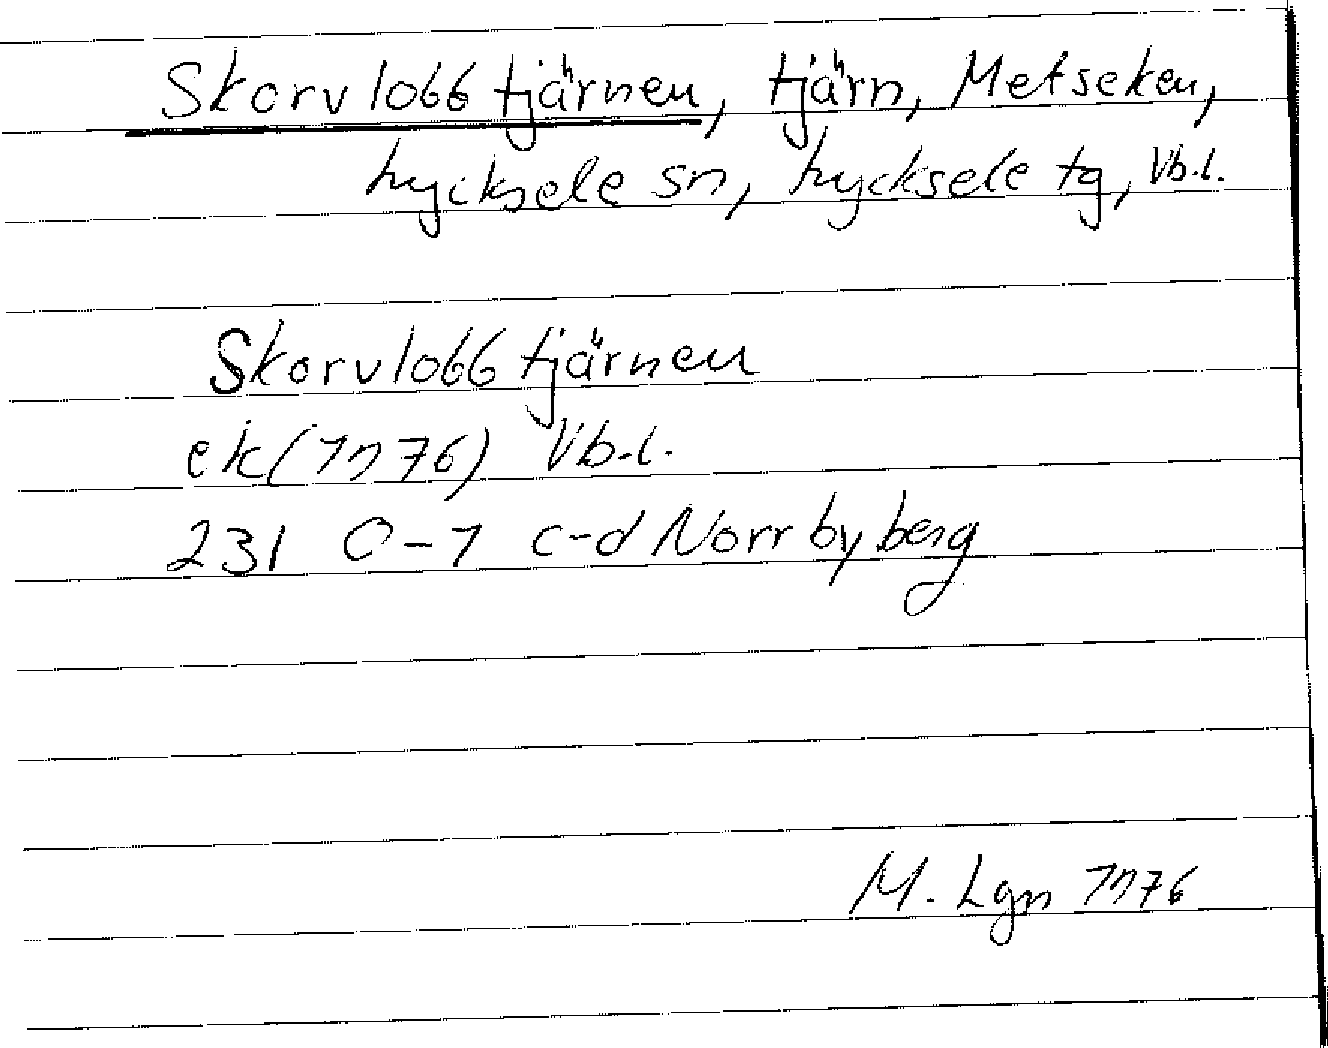 Skorvlobbtjärnen, tjärn, Metseken,
Lycksele sn, Lycksele tg, Vb.l.
Skorvlobbtjärnen
ek (1976) Vb.l.
231 0-1 c-d Norrbyberg
M. Lgn 1976